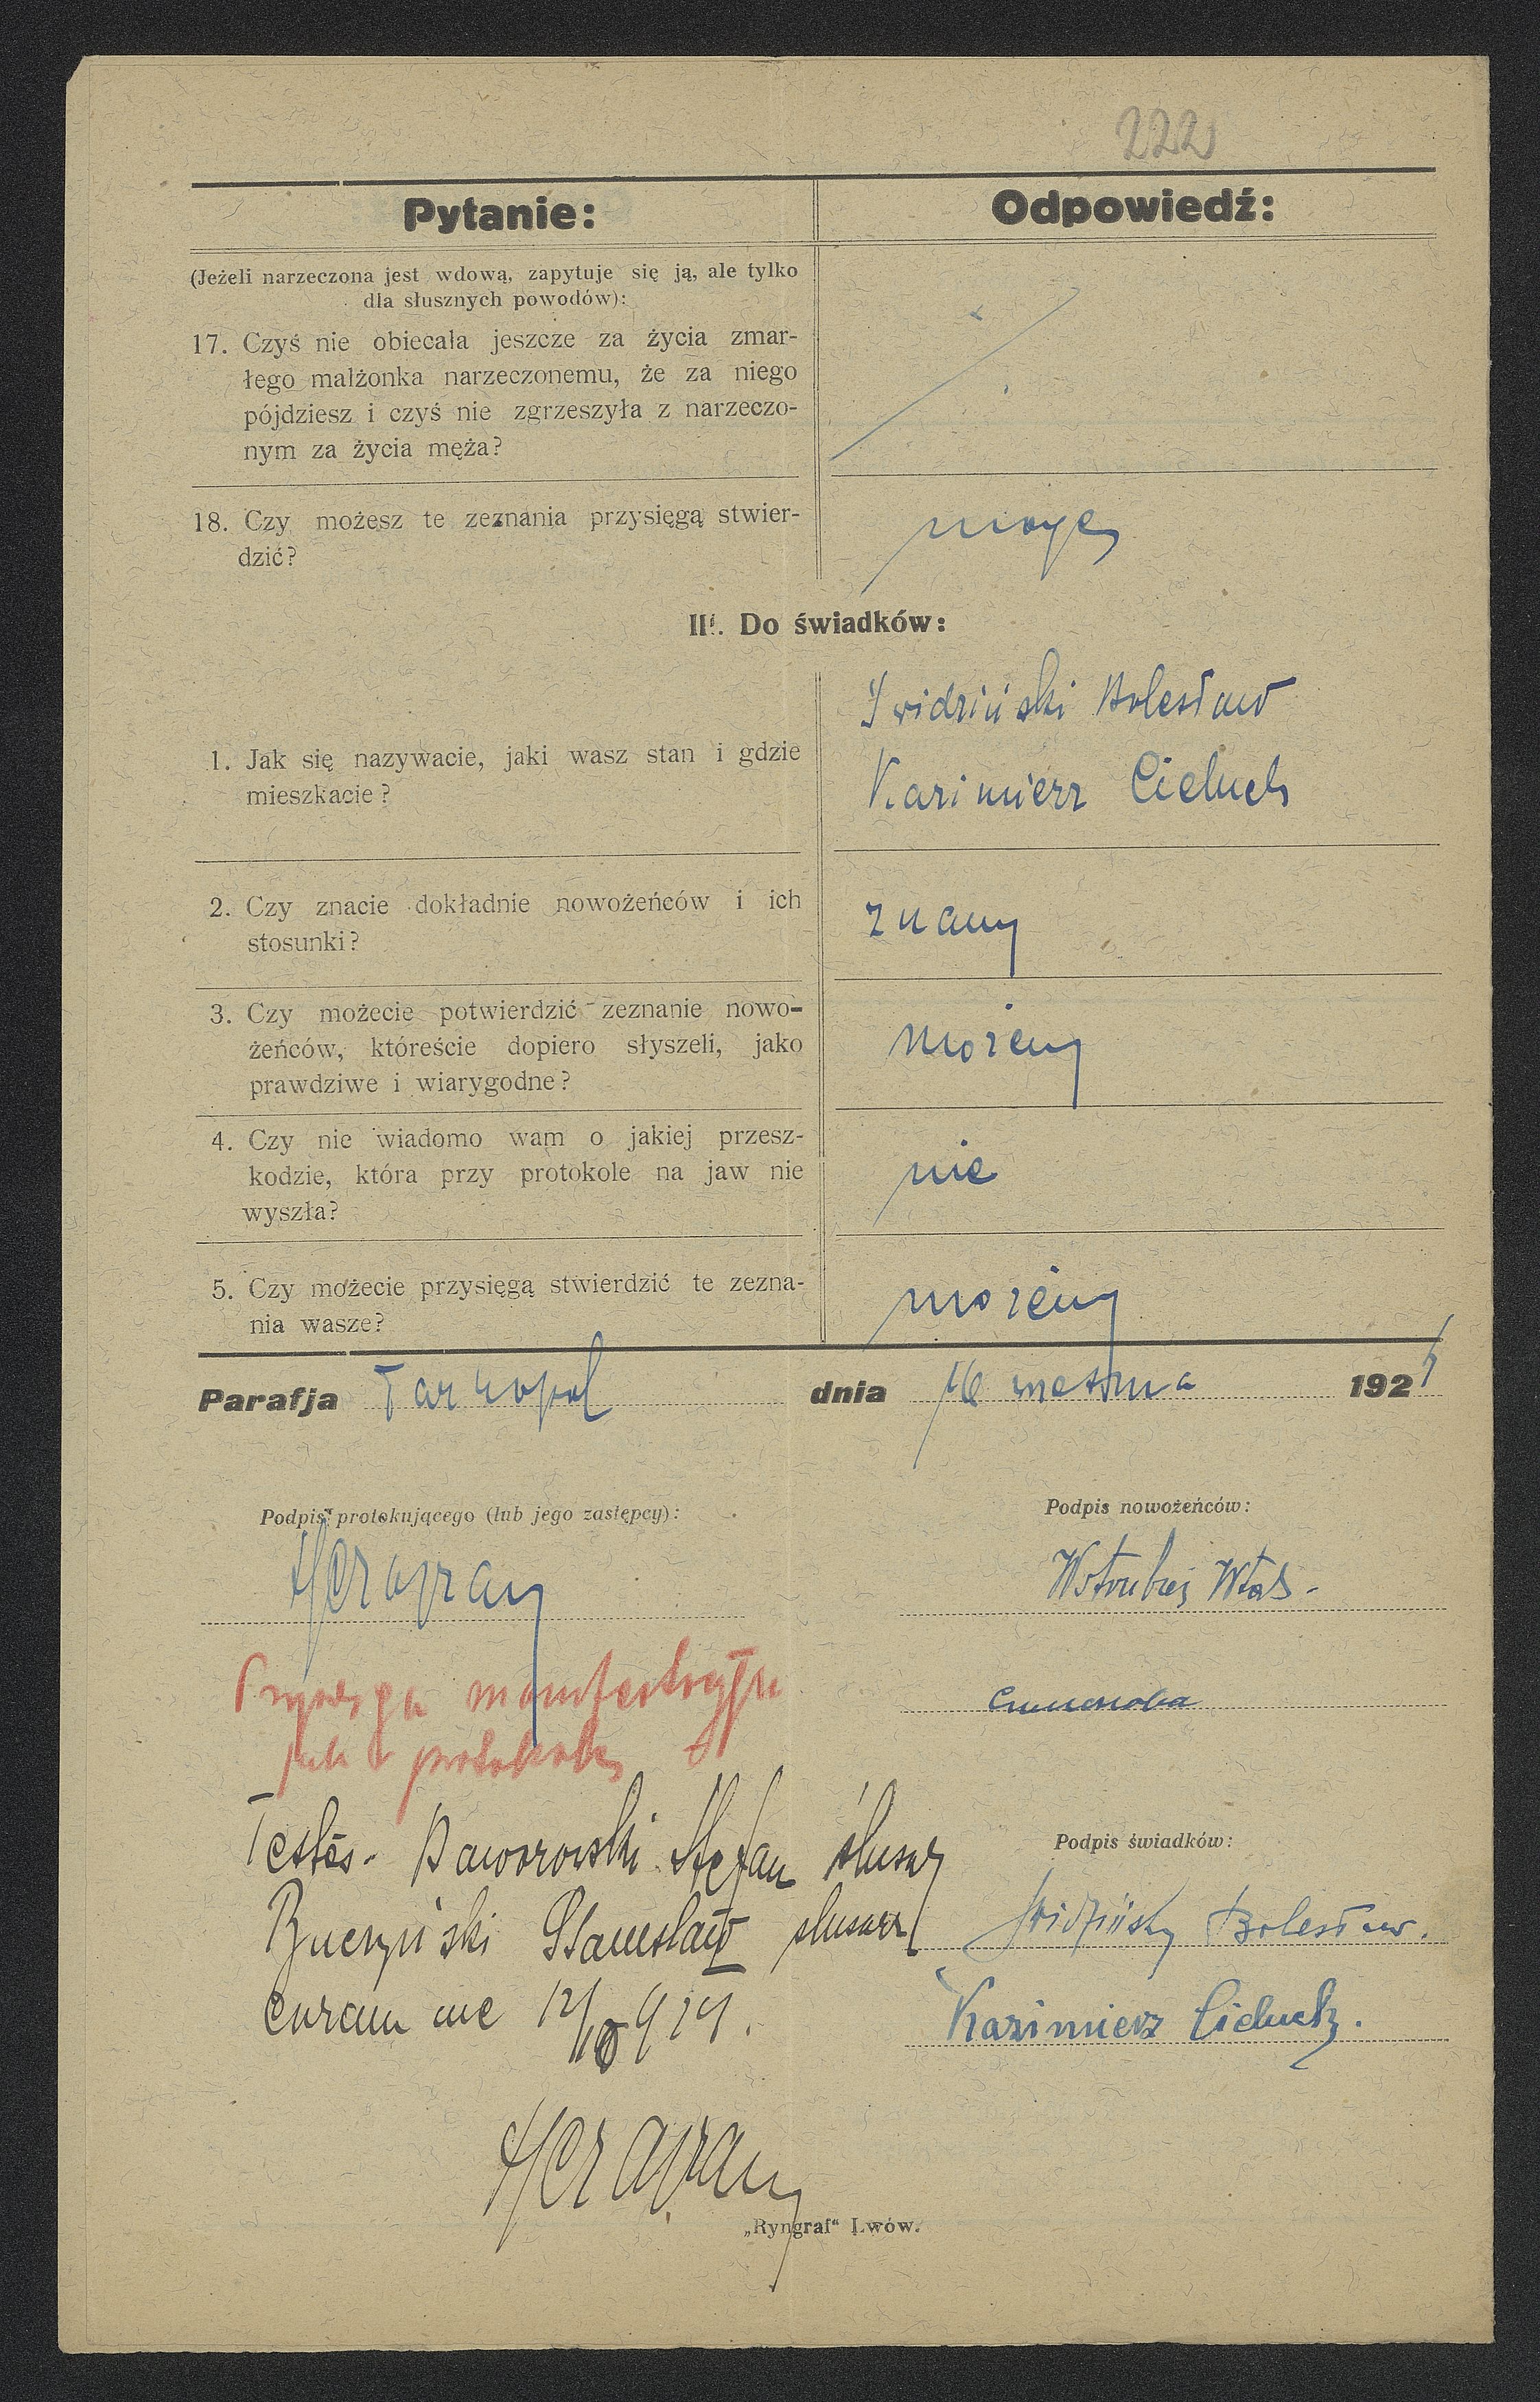 222
Pytanie:
Odpowiedź:
(Jeżeli narzeczona jest wdową, zapytuje się ją, ale tylko
dla słusznych powodów):
17. Czyś nie obiecała jeszcze za życia zmar-
łego małżonka narzeczonemu, że za niego
pójdziesz i czyś nie zgrzeszyła z narzeczo-
nym za życia męża?
18. Czy możesz te zeznania przysięgą stwier-
dzić?
mogę
III. Do świadków:
1. Jak się nazywacie, jaki wasz stan i gdzie
mieszkacie?
Bolesław
Kazimierz
2. Czy znacie dokładnie nowożeńców i ich
stosunki?
znamy
3. Czy możecie potwierdzić zeznanie nowo-
żeńców, któreście dopiero słyszeli, jako
prawdziwe i wiarygodne?
możemy
4. Czy nie wiadomo wam o jakiej przesz-
kodzie, która przy protokole na jaw nie
wyszła?
nie
5. Czy możecie przysięgą stwierdzić te zezna-
nia wasze?
możemy
Parafja Tarnopol dnia 192
Podpis protokującego (lub jego zastępcy):
Podpis nowożeńców:
Testes. Baworowski Stefan ślusarz
Podpis świadków:
Stanisław ślusarz
Bolesław.
coram me
Kazimierz
„Ryngraf" Lwów.